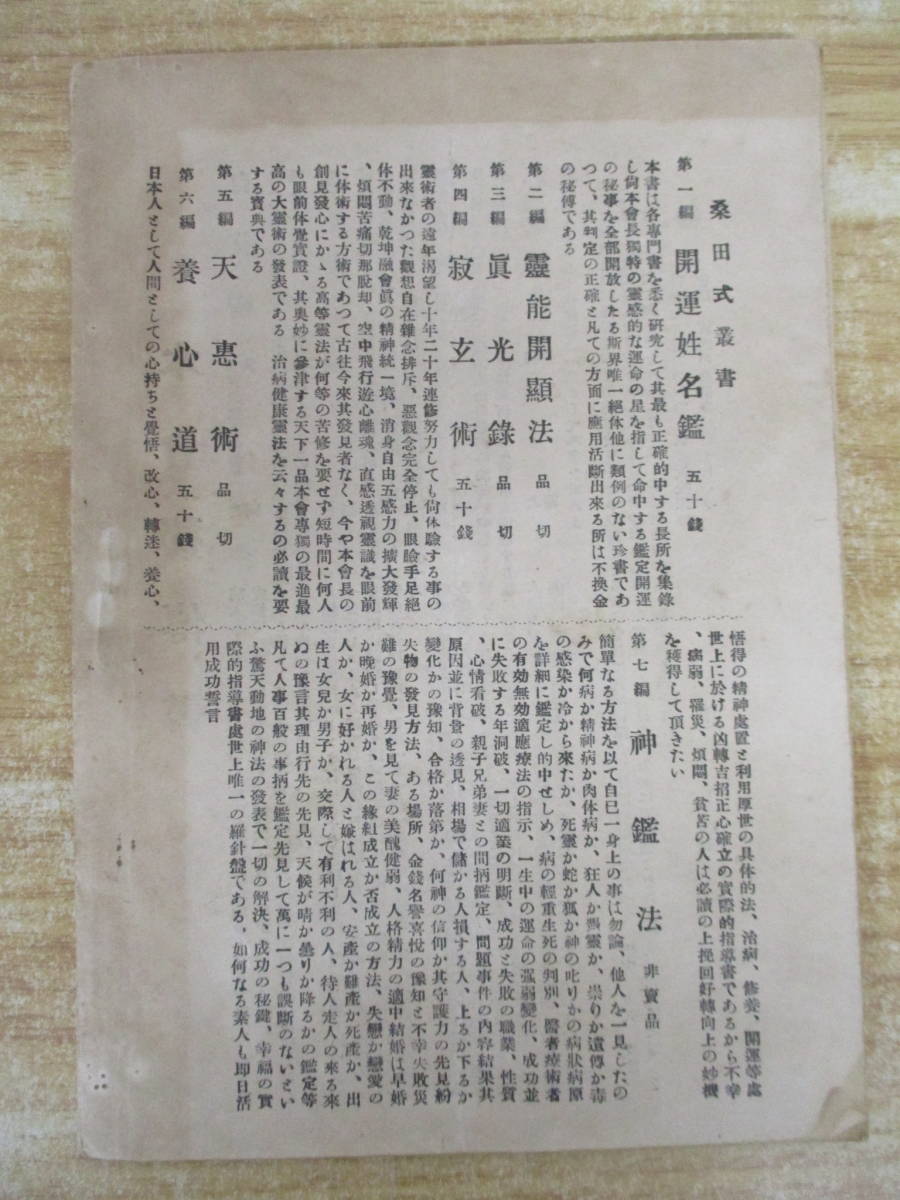 桑田式叢書
第一編 開運姓名鑑 五十錢
本書は各專門書を悉く研究して其最も正確的中する長所を集錄
し尙本會長獨特の靈感的な運命の星を指して命中する鑑定開運
の秘事を全部開放したる斯界唯一絕体他に類例のない珍書であ
つて、其判定の正確と凡ての方面に應用活斷出來る所は不換金
の秘傳である
第二編 靈能開顯法 品切
第三編 眞光錄 品切
第四編 寂玄術 五十錢
靈術者の遠年渴望し十年二十年連修努力しても尙休驗する事の
出來なかつた觀想自在雜念排斥、惡觀念完全停止、眼瞼手足絕
体不動、乾坤融會眞の精神統一境、消身自由五感力の擴大發輝
、煩悶苦痛切那脫却、空中飛行遊心離魂、直感透視靈識を眼前
に体術する方術であつて古往今來其發見者なく、今や本會長の
創見發心にかゝる高等靈法が何等の苦修を要せず短時間に何人
も眼前体覺實證、其奧妙に參津する天下一品本會專獨の最進最
高の大靈術の發表である 治病健康靈法を云々するの必讀を要
する寶典である
第五編 天惠術 品切
第六編 養心道 五十錢
日本人として人間としての心持ちと覺悟、改心、轉迷、養心、
悟得の精神處置と利用厚世の具体的法、治病、修養、開運等處
世上に於ける凶轉吉招正心確立の實際的指導書であるから不幸
、病弱、罹災、煩悶、貧苦の人は必讀の上挽回好轉向上の妙機
を獲得して頂きたい
第七編 神鑑法 非賣品
簡單なる方法を以て自已一身上の事は勿論、他人を一見したの
みで何病か精神病か肉体病か、狂人か憑靈か、崇りか遺傳か毒
の感染か冷から來たか、死靈か蛇か狐か神の叱りかの病狀病原
を詳細に鑑定し的中せしめ、病の輕重生死の判別、醫者療術者
の有効無効適應療法の指示、一生中の運命の强弱變化、成功並
に失敗する年洞破、一切適業の明斷、成功と失敗の職業、性質
、心情看破、親子兄弟妻との間柄鑑定、問題事件の內容結果其
原因並に背景の透見、相場で儲かる人損する人、上るか下るか
變化かの豫知、合格か落第か、何神の信仰か其守護力の先見紛
失物の發見方法、ある場所、金錢名譽喜悅の豫知と不幸失敗災
難の豫覺、男を見て妻の美醜健弱、人格精力の適中結婚は早婚
か晚婚か再婚か、この緣組成立か否成立の方法、失戀か戀愛の
人か、女に好かれる人と嫌はれる人、安產か難產か死產か、出
生は女兒か男子か、交際して有利不利の人、待人走人の來る來
ぬの豫言其理由行先の先見、天候が晴か曇りか降るかの鑑定等
凡て人事百般の事柄を鑑定先見して萬に一つも誤斷のないとい
ふ驚天動地の神法の發表で一切の解決、成功の秘鍵、幸福の實
際的指導書處世上唯一の羅針盤である、如何なる素人も卽日活
用成功誓言